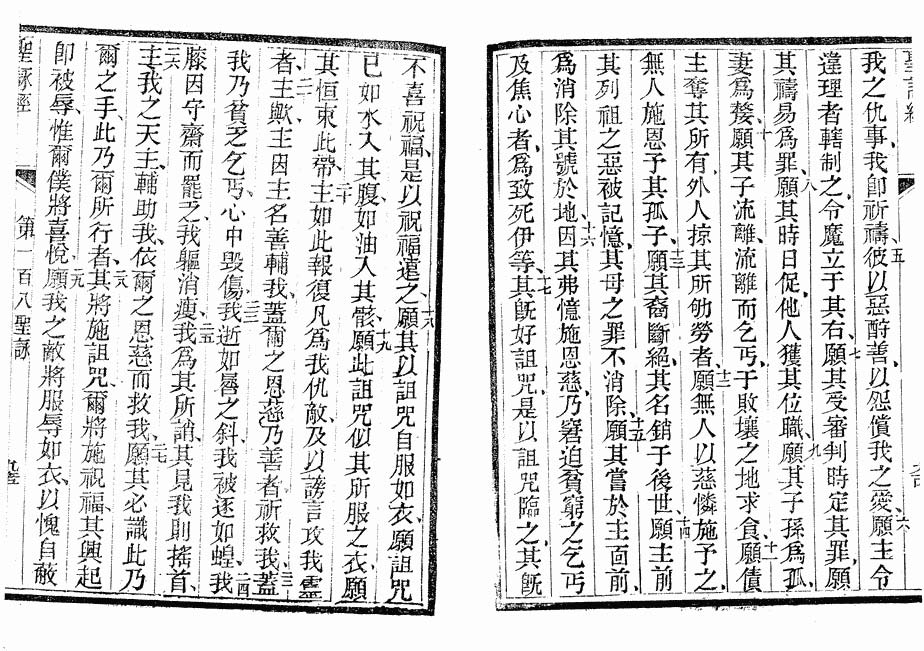 聖詠經
我之仇事、我卽祈禱、五彼以惡酧善、以怨償我之愛、六願主令
違理者轄制之、令魔立于其右、七願其受審判時定其罪、願
其禱易爲罪、八願其時日促、他人獲其位職、九願其子孫爲孤、
妻爲嫠、十願其子流離、流離而乞丐、于敗壞之地求食、十一願債
主奪其所有、外人掠其所劬勞者、十二願無人以慈憐施予之、
無人施恩予其孤子、十三願其裔斷絕、其名銷于後世、十四願主前
其列祖之惡被記憶、其母之罪不消除、十五願其嘗於主面前、
爲消除其號於地、十六因其弗憶施恩慈、乃窘迫貧窮之乞丐
及焦心者、爲致死伊等、十七其旣好詛咒、是以詛咒臨之、其旣
不喜祝福、是以祝福遠之、十八願其以詛咒自服如衣、願詛咒
已如水入其腹、如油入其骸、十九願此詛咒似其所服之衣、願
其恒束此帶、二十主如此報復凡爲我仇敵、及以謗言攻我靈
者、二一主歟、主因主名善輔我、蓋爾之恩慈乃善者、祈救我、二二蓋
我乃貧乏乞丐、心中毀傷、二三我逝如晷之斜、我被逐如蝗、二四我
膝因守齋而罷乏、我軀消瘦、二五我爲其所誚、其見我則搖首、
二六主我之天主、輔助我、依爾之恩慈而救我、二七願其必識此乃
爾之手、此乃爾所行者、二八其將施詛咒、爾將施祝福、其興起
卽被辱、惟爾僕將喜悅、二九願我之敵將服辱如衣、以愧自蔽
聖詠經
第一百八聖詠
九三